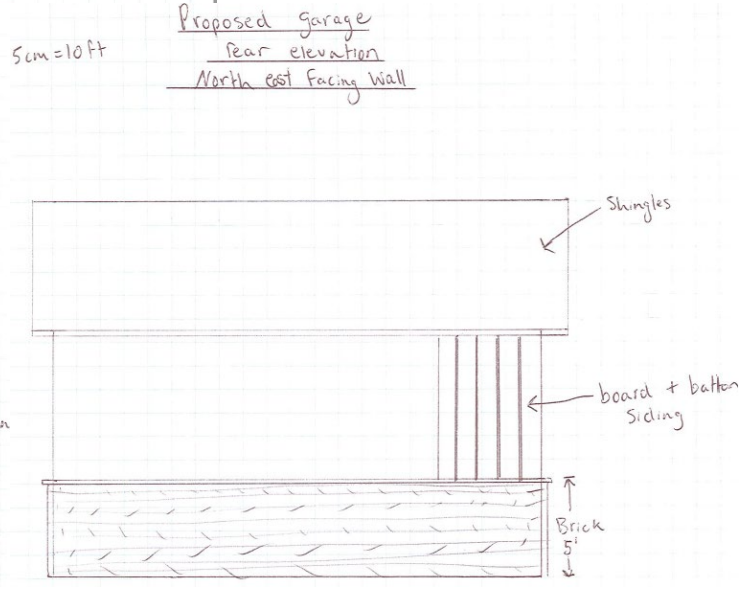 Proposed garage
5cm=10ft
rear elevation
North east Facing Wall
Shingles
board + batton
Siding
Brick
5'